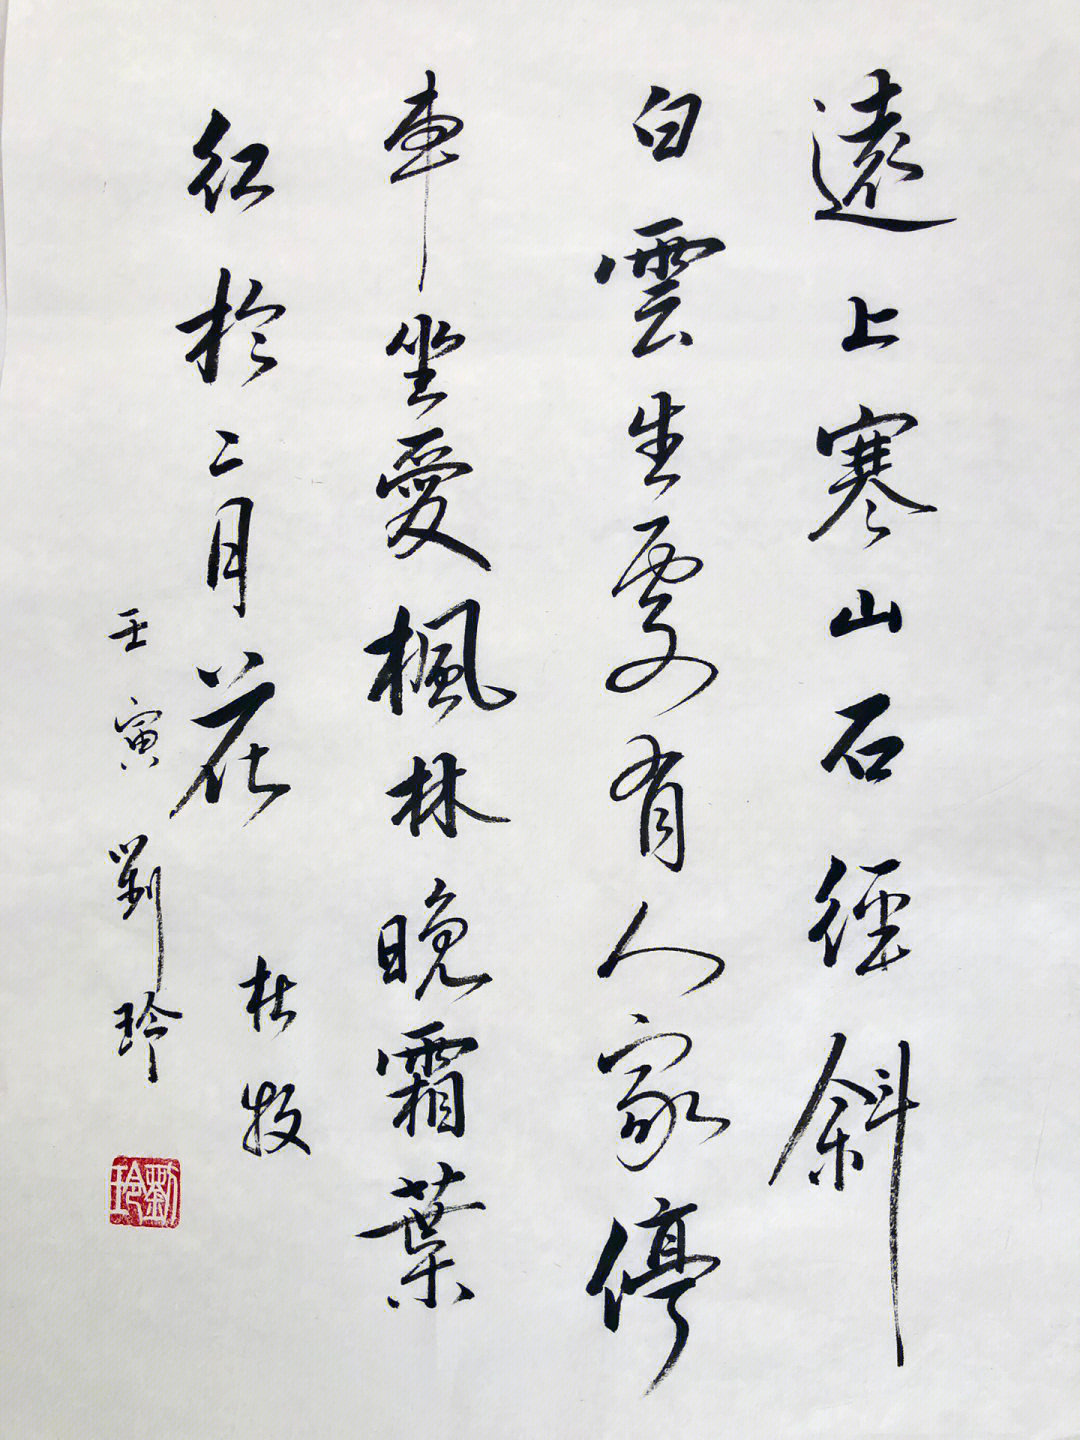 遠上寒山石徑斜
白雲生處有人家停
車坐愛楓林晚霜葉
紅於二月花
杜牧
壬寅劉玲
劉玲